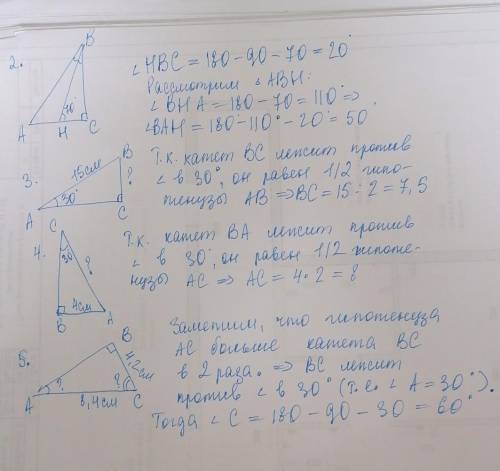 2.
B
70°
A H C
∠HBC = 180 - 90 - 70 = 20°
Рассмотрим ∠ ABH:
∠ BHA = 180 - 70 = 110° =>
∠BAH = 180° - 110° - 20° = 50°
3.
15см
B
?
30°
A C
Т.к. катет BC лежит против
∠ в 30°, он равен 1/2 гипо-
тенузы AB => BC = 15 : 2 = 7,5
4.
C
30
?
4см
B A
Т.к. катет BA лежит против
∠ в 30°, он равен 1/2 гипоте-
нузы AC => AC = 4 · 2 = 8
5.
B
4,2см
? ?
A 8,4см C
Заметим, что гипотенуза
AC больше катета BC
в 2 раза. => BC лежит
против ∠ в 30° (т.е. ∠ A = 30°).
Тогда ∠ C = 180 - 90 - 30 = 60°